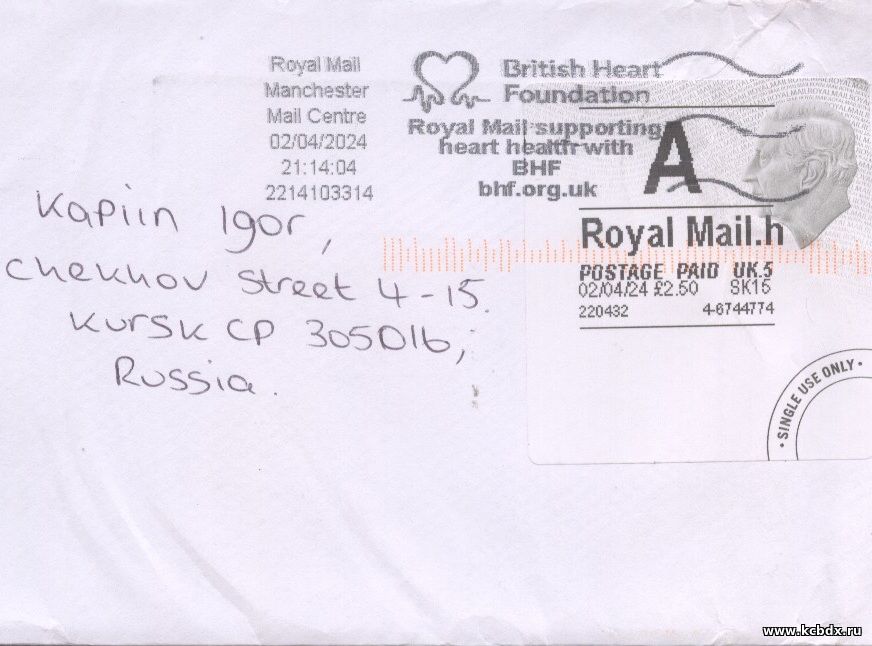 Royal Mail
Manchester
Mail Centre
02/04/2024
21:14:04
2214103314
British Heart
Foundation
Royal Mail supporting
heart health with
BHF
bhf.org.uk
A
Royal Mail.h
POSTAGE PAID UK.5
02/04/24 £2.50 SK15
220432 4-6744774
• SINGLE USE ONLY •
Kapiin Igor,
Chekhov Street 4-15.
Kursk CP 305016,
Russia.
www.kcbdx.ru